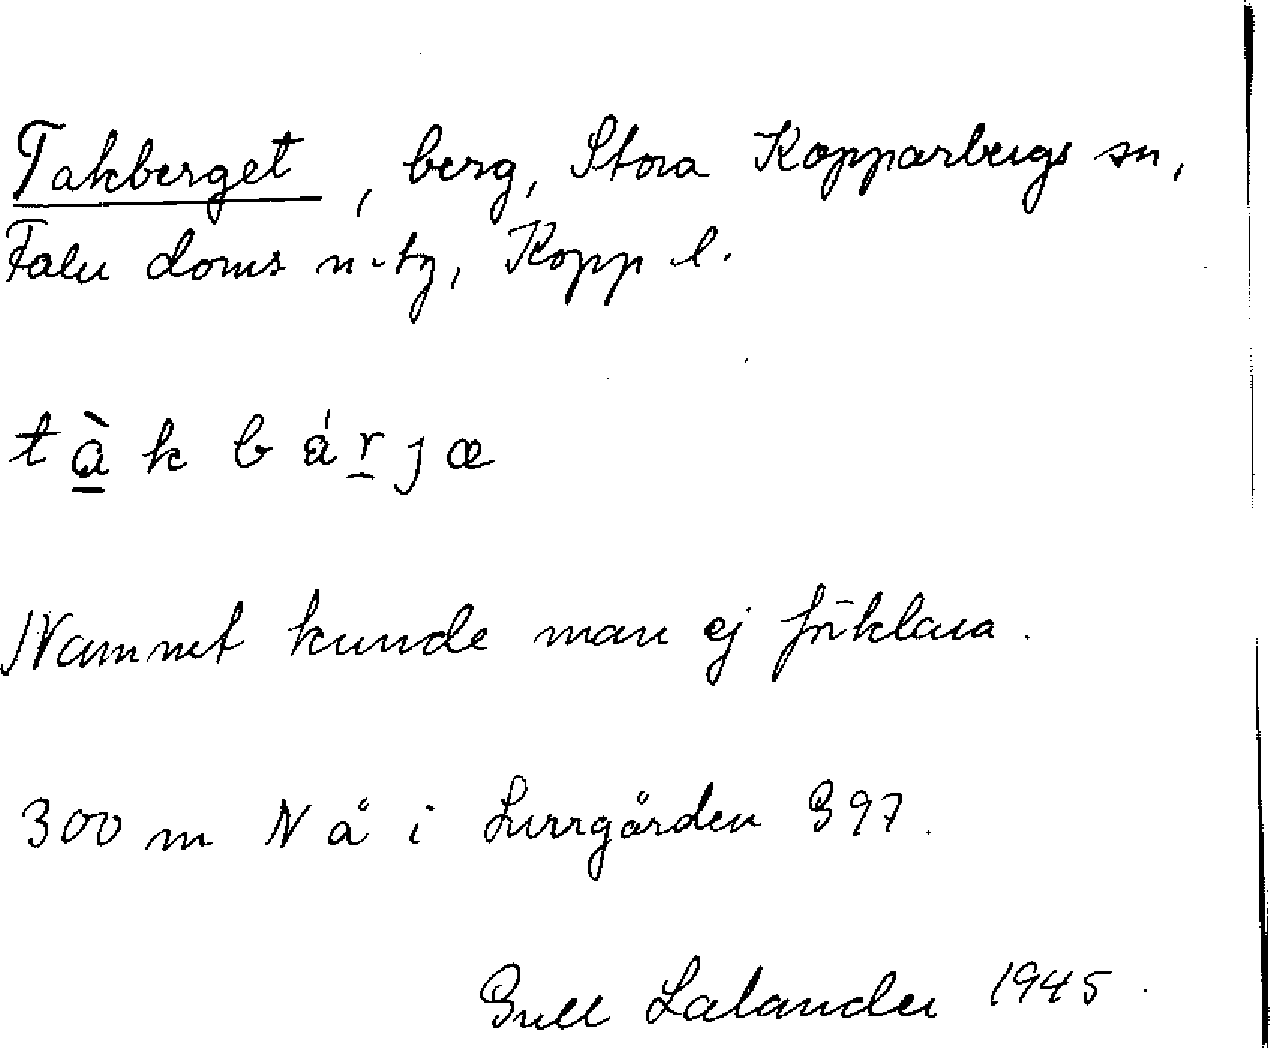 Takberget, berg, Stora Kopparbergs sn,
Falu doms n. tg, Kopp l.
tàk bárjæ
Namnet kunde man ej förklara.
300 m N å i Lurrgården 397.
Gull Lalander 1945.